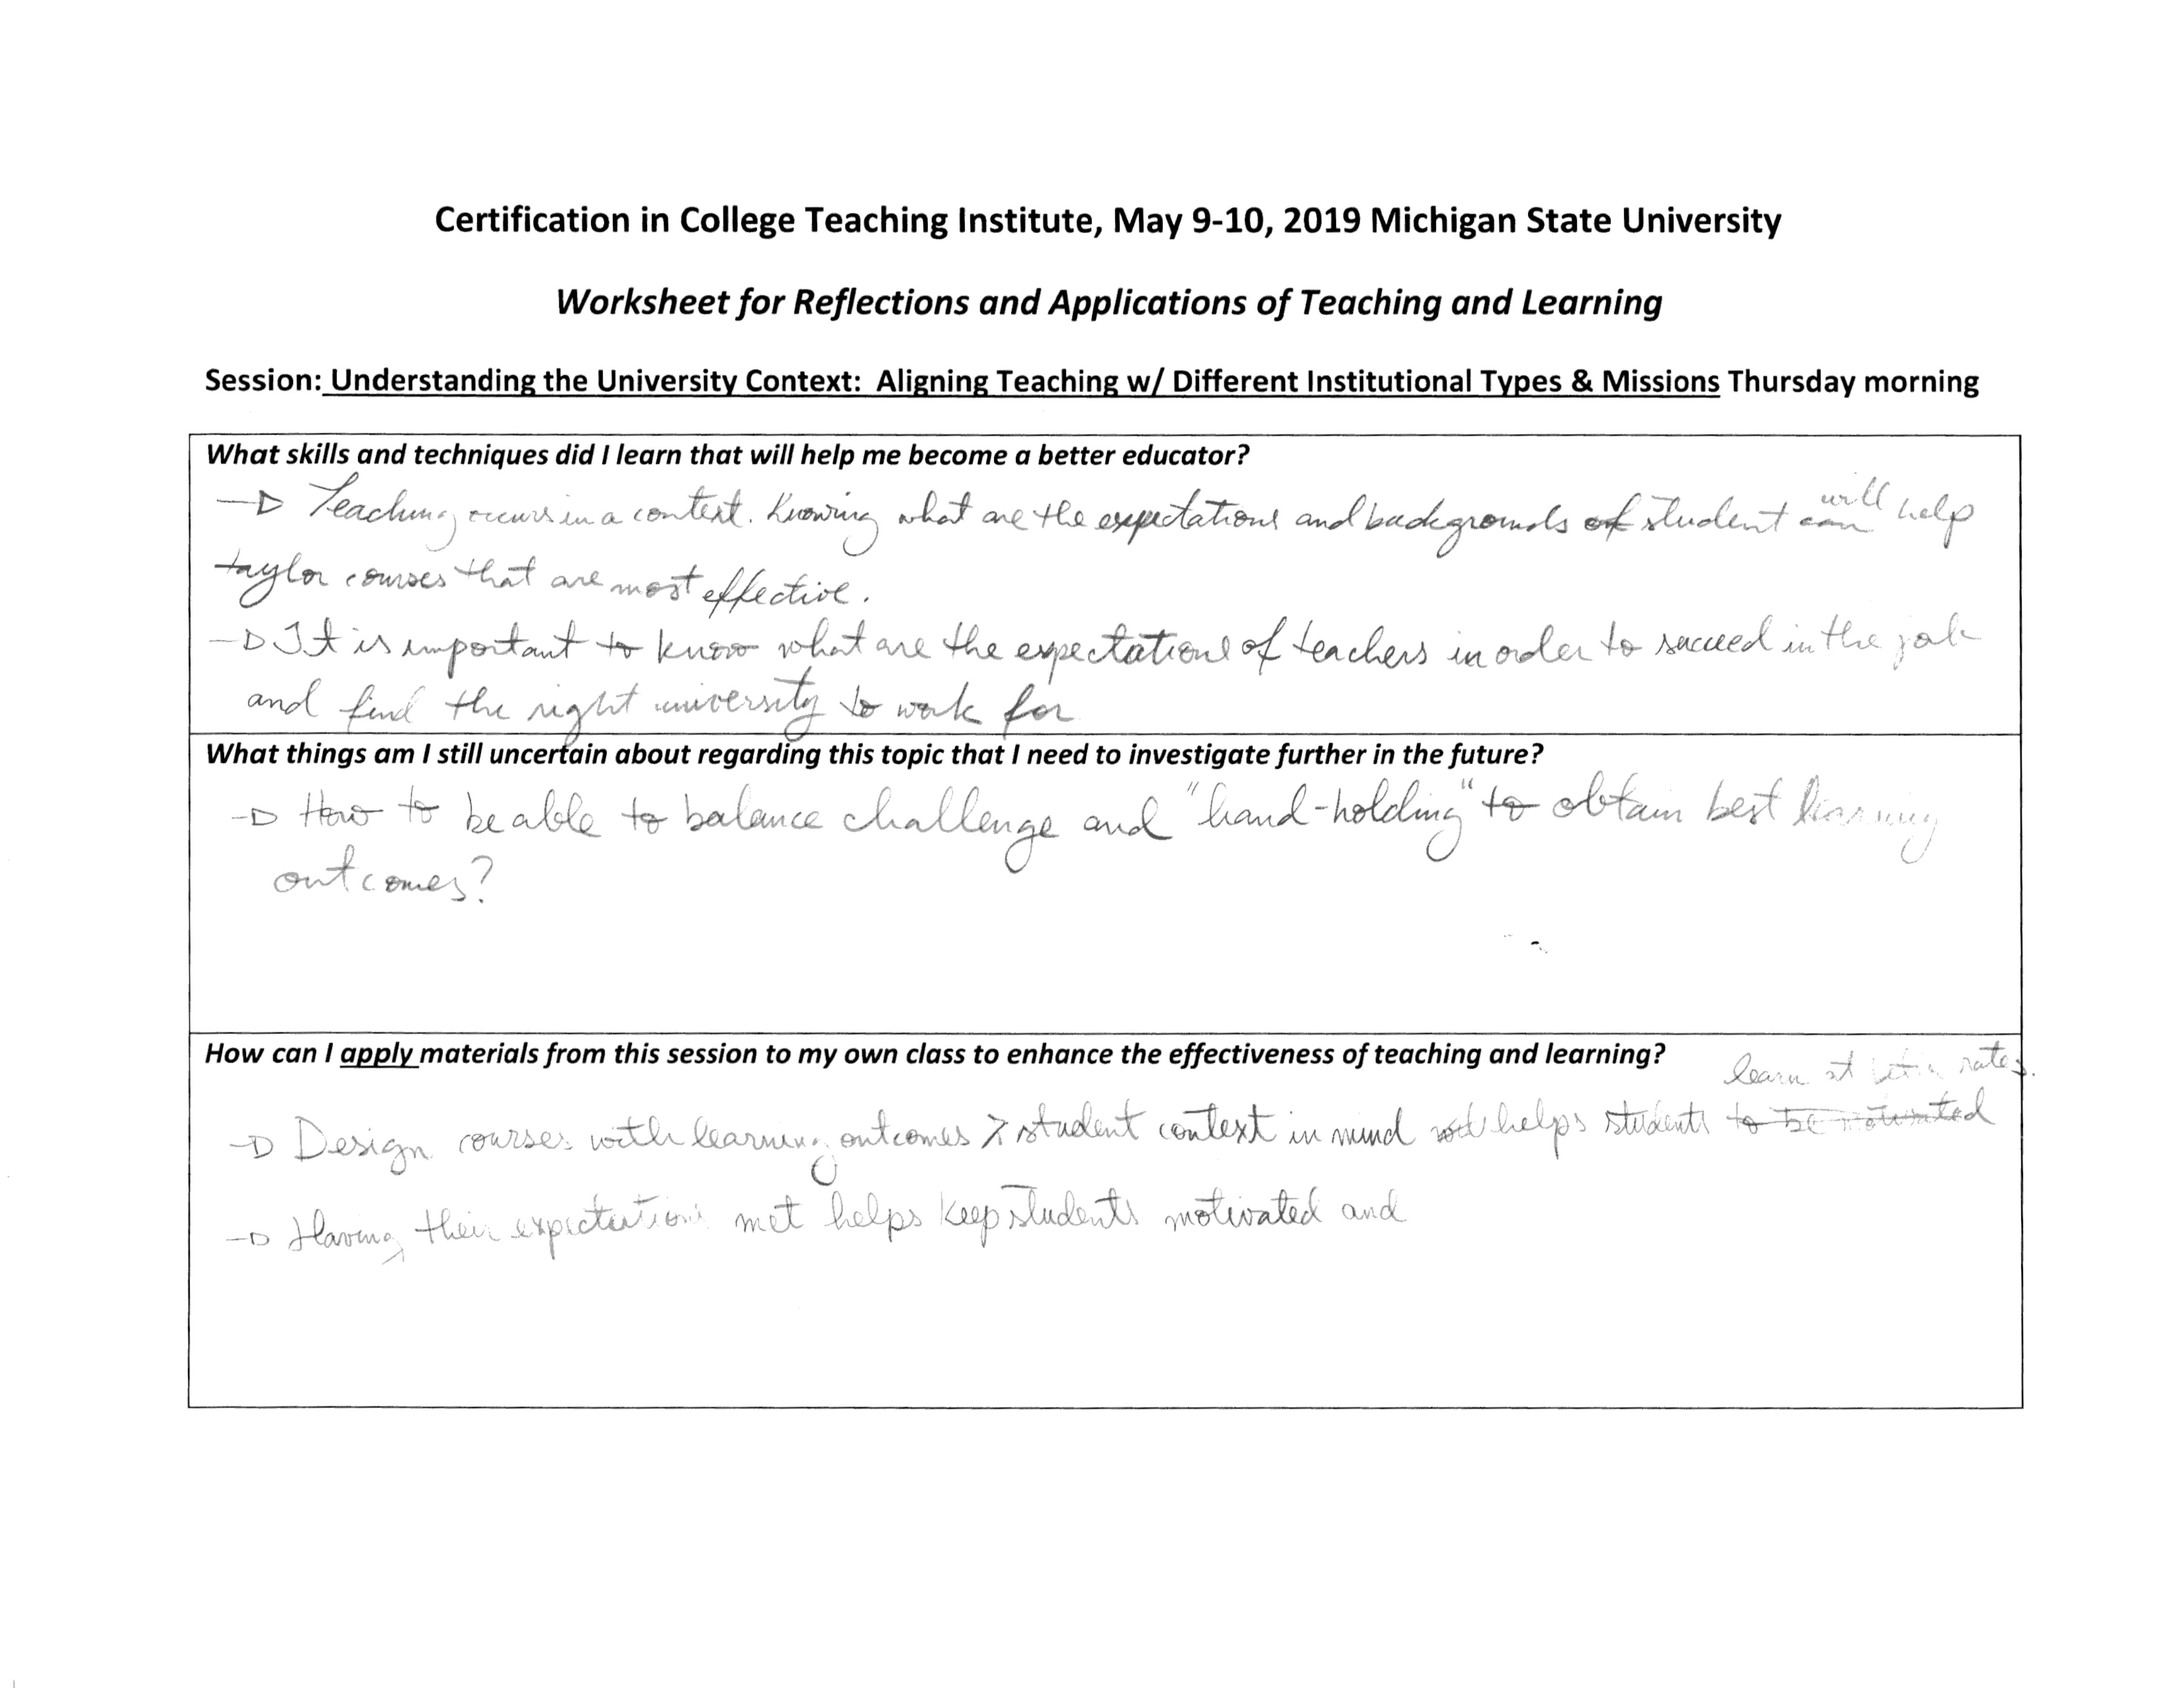 Certification in College Teaching Institute, May 9-10, 2019 Michigan State University
Worksheet for Reflections and Applications of Teaching and Learning
Session: Understanding the University Context: Aligning Teaching w/ Different Institutional Types & Missions Thursday morning
What skills and techniques did I learn that will help me become a better educator?
→ Teaching occurs in a context. Knowing what are the expectations and backgrounds of student can will help
taylor courses that are most effective.
→ It is important to know what are the expectations of teachers in order to succeed in the job
and find the right university to work for
What things am I still uncertain about regarding this topic that I need to investigate further in the future?
→ How to be able to balance challenge and "hand-holding" to obtain best learning
outcomes?
How can I apply materials from this session to my own class to enhance the effectiveness of teaching and learning?
learn at better rates.
→ Design courses with learning outcomes & student context in mind helps students to be motivated
→ Having their expectations met helps keep students motivated and